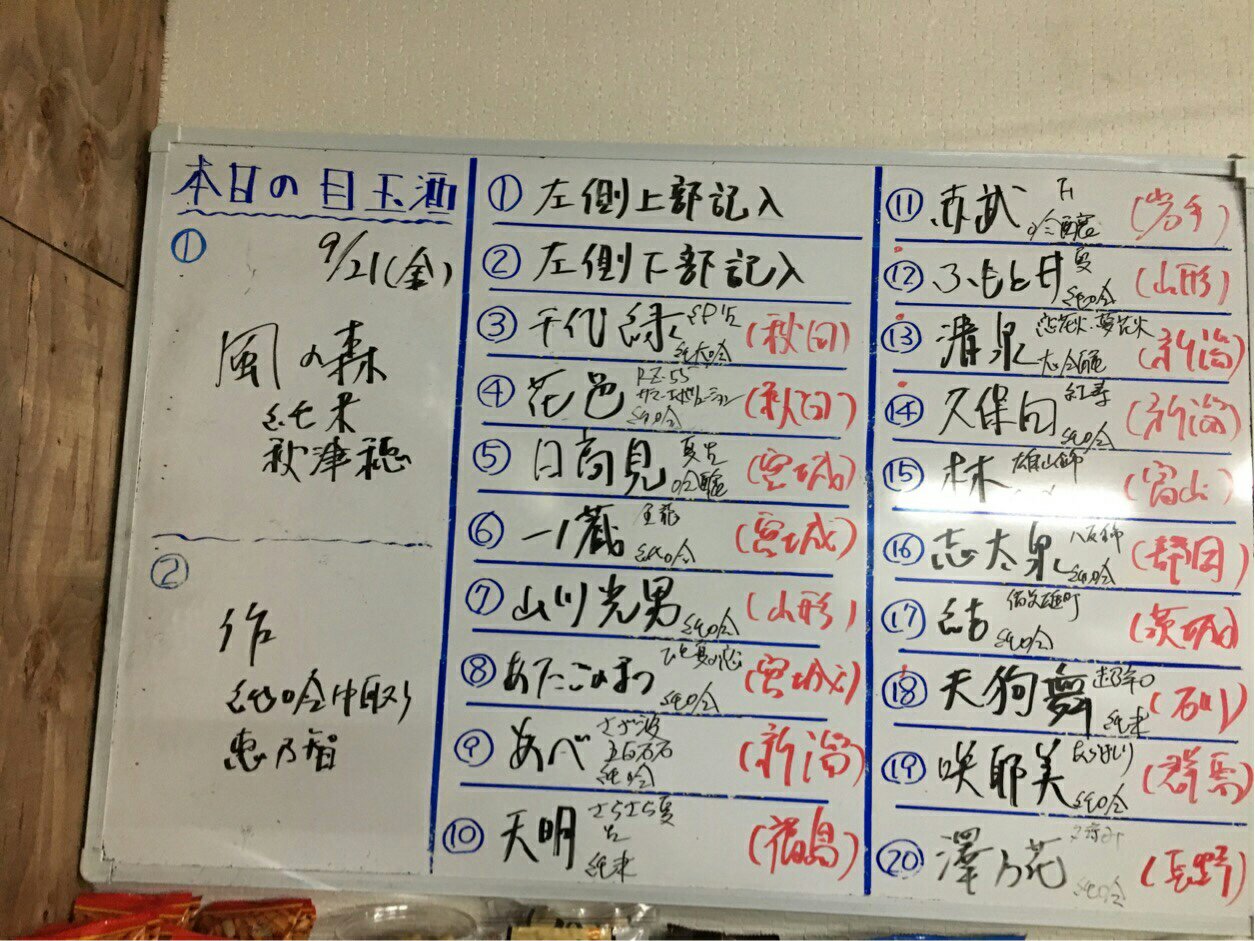 本日の目玉酒
①
9/21(金)
風の森
純米
秋津穂
②
作
純吟中取り
恵乃智
① 左側上部記入
② 左側下部記入
③ 千代緑 純大吟 (秋田)
④ 花邑 純吟 (秋田)
⑤ 日高見 夏 吟醸 (宮城)
⑥ 一ノ蔵 純吟 (宮城)
⑦ 山川光男 純吟 (山形)
⑧ あたごのまつ ひと夏の恋 純吟 (宮城)
⑨ あべ 五百万石 純吟 (新潟)
⑩ 天明 さらさら夏 純米 (福島)
⑪ 赤武 F 吟醸 (岩手)
⑫ ふもと井 夏 純吟 (山形)
⑬ 清泉 大吟醸 (新潟)
⑭ 久保田 紅寿 純吟 (新潟)
⑮ 林 雄山錦 (富山)
⑯ 志太泉 八反錦 純吟 (静岡)
⑰ 結 備前雄町 純吟 (茨城)
⑱ 天狗舞 超辛口 純米 (石川)
⑲ 咲耶美 あらばしり 純吟 (群馬)
⑳ 澤乃花 純吟 (長野)